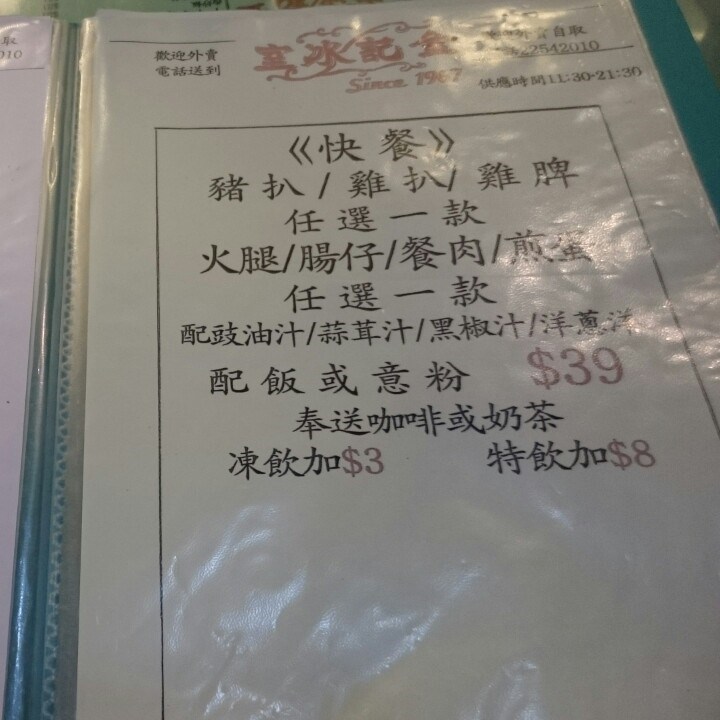 取
010
歡迎外賣
電話送到
室冰記金
Since 1967
外賣自取
22542010
供應時間11:30-21:30
《快餐》
豬扒/雞扒/雞脾
任選一款
火腿/腸仔/餐肉/煎蛋
任選一款
配豉油汁/蒜茸汁/黑椒汁/洋蔥洋
配飯或意粉 $39
奉送咖啡或奶茶
凍飲加$3 特飲加$8